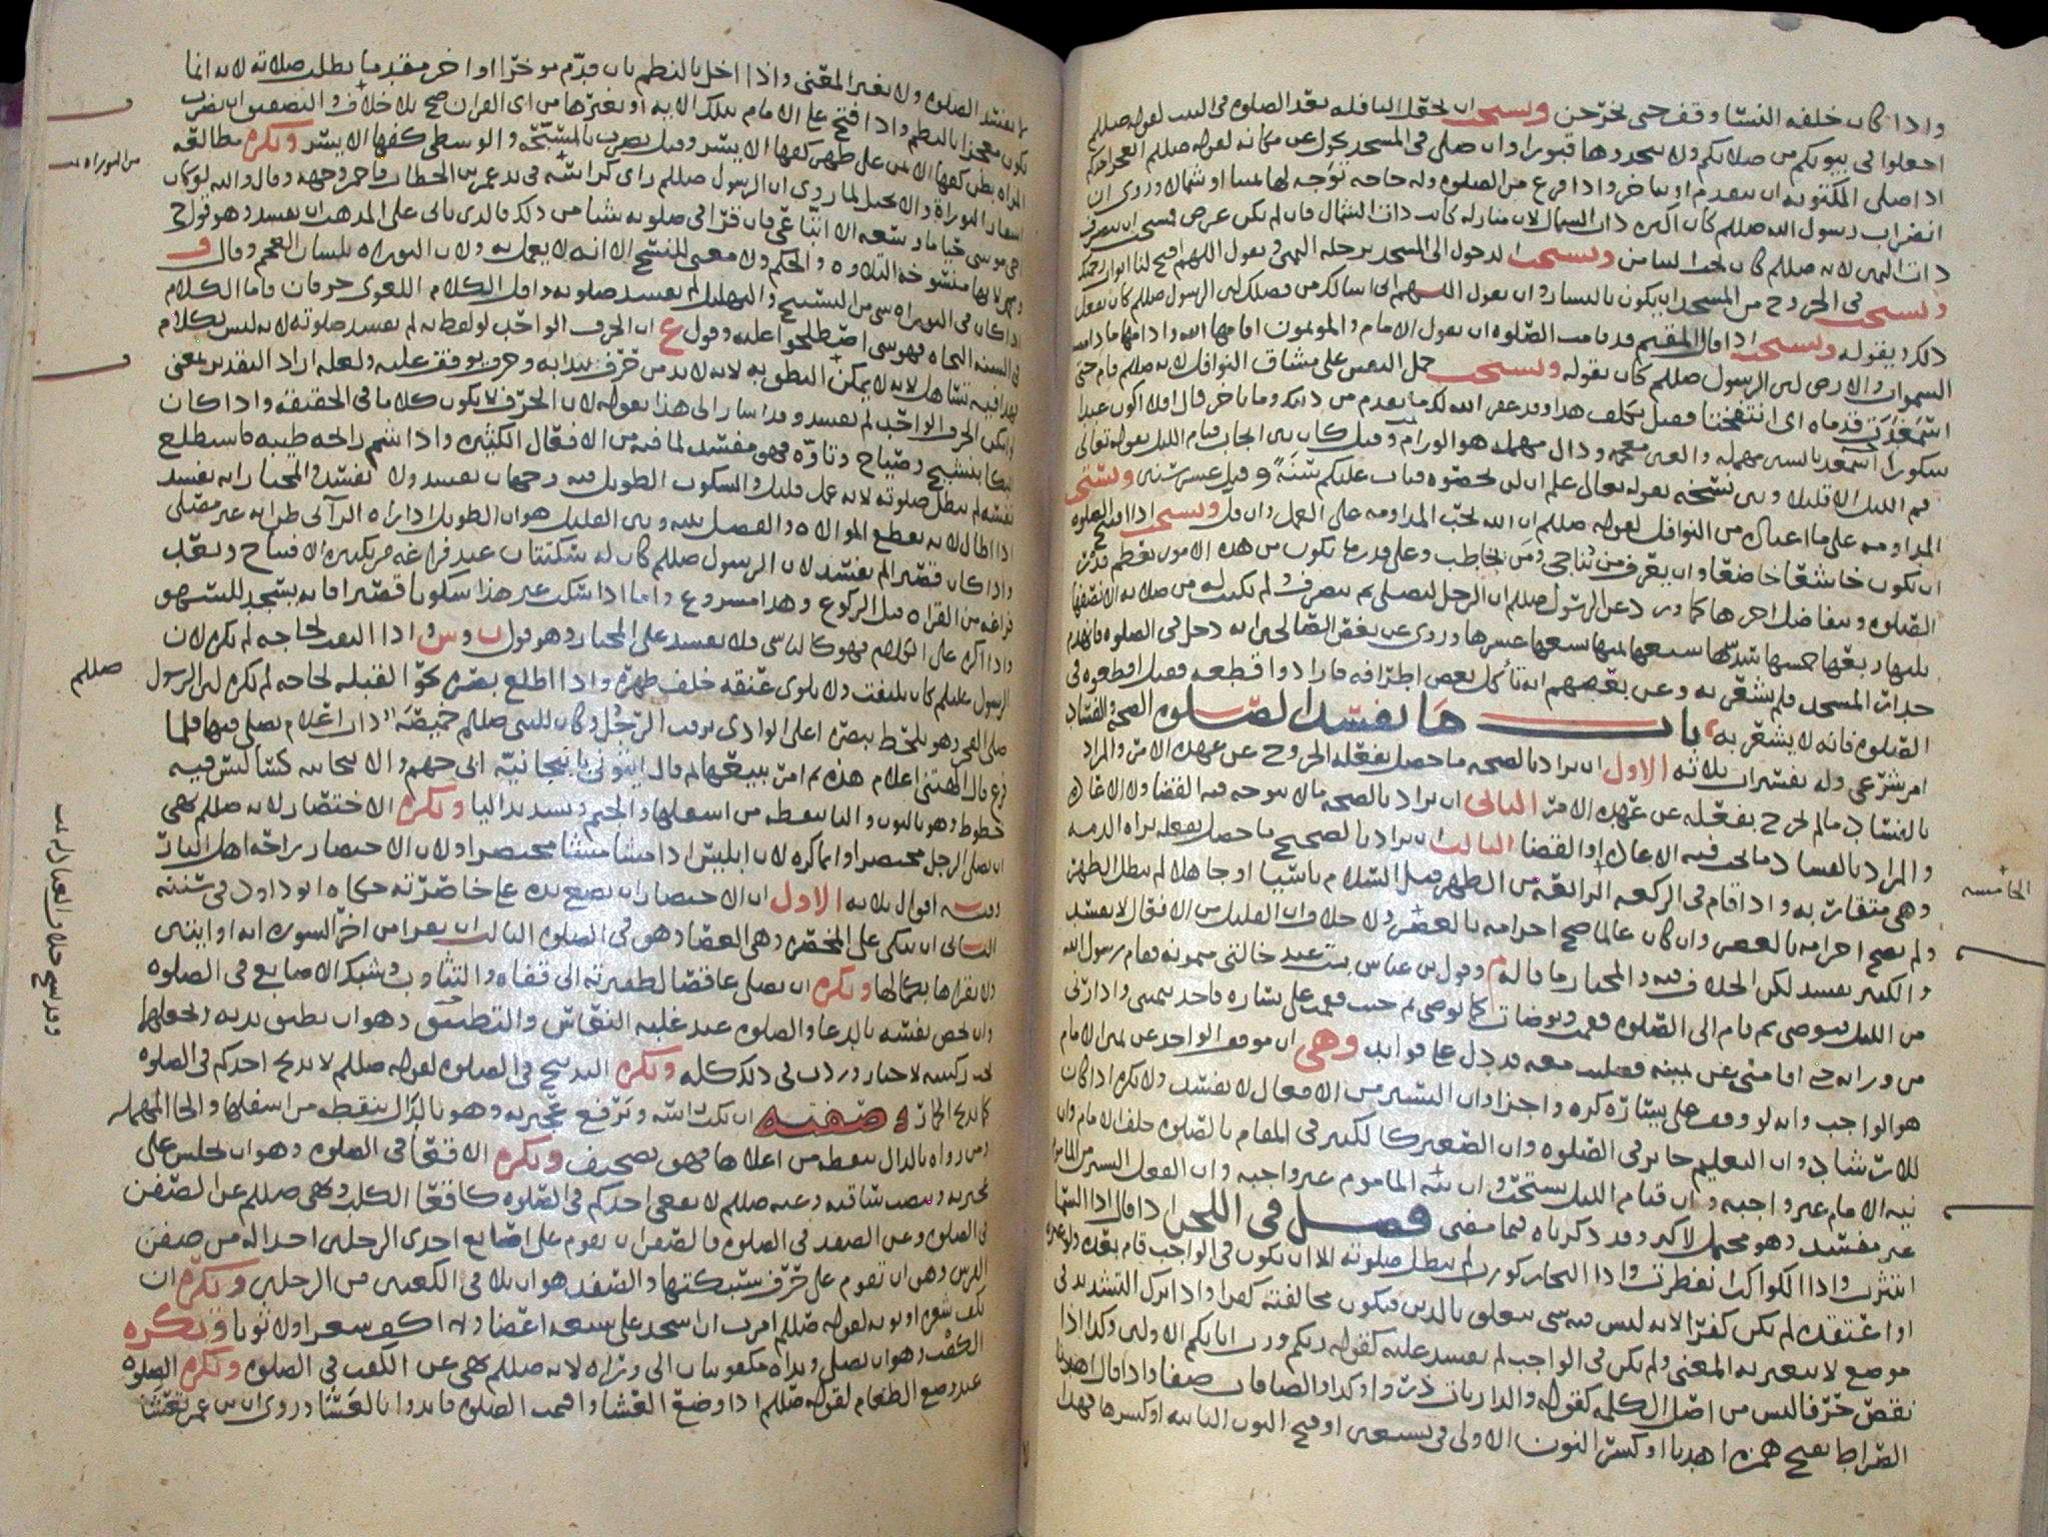 واذا كان خلفه النسا وقف حتى يخرجن ويستحب ان يجعل النافله بعد الصلوه في البيت لقوله صللم
اجعلوا في بيوتكم من صلاتكم ولا تتخذوها قبورا وان صلى في المسجد تحول عن مكانه لقوله صللم ايعجز احدكم
اذا صلى المكتوبه ان يتقدم او يتاخر واذا فرغ من الصلوه وله حاجه توجه لها يمينا او شمالا وروي ان
انصراف رسول الله صللم كان اكثره ذات الشمال لان منازله كانت ذات الشمال فان لم يكن غرض فيستحب ان ينصرف
ذات اليمين لانه صللم كان يحب التيامن ويستحب لدخول الى المسجد برجله اليمنى ويقول اللهم افتح لنا ابواب رحمتك
ويستحب في الخروج من المسجد ان يكون باليسار وان يقول اللهم اني اسالك من فضلك لان الرسول صللم كان يفعل
ذلك ويقوله ويستحب اذا قال المقيم قد قامت الصلوه ان يقول الامام والمومنون اقامها الله وادامها ما دامت
السموات والارض لان الرسول صللم كان يقوله ويستحب حمل النفس على مشاق النوافل لانه صللم قام حتى
اسمغدت قدماه اي انتفختا فقيل تكلف هذا وقد غفر الله لك ما تقدم من ذنبك وما تاخر قال افلا اكون عبدا
شكورا اسمغد بالسين مهمله والغين معجمه ودال مهمله هو الورم وقيل كان بين ايجاب قيام الليل بقوله تعالى
قم الليل الا قليلا وبين نسخه بقوله تعالى علم ان لن تحصوه فتاب عليكم سنة وقيل عشر سنين ويستحب
المداومه على ما اعتاده من النوافل لقوله صللم ان الله يحب المداومه على العمل وان قل ويستحب اذا افتتح الصلوه
ان يكون خاشعا خاضعا وان يعرف من يناجي ومن يخاطب وعلى قدر ما يكون من هذه الامور يعظم قدر
الصلوه ويتفاضل اجرها كما ورد عن الرسول صللم ان الرجل ليصلي ثم ينصرف ولم يكتب له من صلاته الا نصفها
ثلثها ربعها خمسها سدسها سبعها ثمنها تسعها عشرها وروي عن بعض الصالحين انه دخل في الصلوه فانهدم
جدار المسجد فلم يشعر به وعن بعضهم انه تأكل بعض اطرافه فارادوا قطعه فقيل اقطعوه في
الصلوه فانه لا يشعر به باب ما يفسد الصلوه الصحة والفساد
امر شرعي وله تفسيران ثلاثه الاول ان يراد بالصحه ما حصل بفعله الخروج عن عهده الامر والمراد
بالفساد ما لم يخرج بفعله عن عهده الامر الثاني ان يراد بالصحه ما لا يتوجه فيه القضا ولا الاعاده
والمراد بالفساد ما يجب فيه الاعاده او القضا الثالث ان يراد بالصحيح ما حصل بفعله براه الذمه
وهي متقاربه واذا قام في الركعه الرابعة من الظهر قبل السلام ناسيا او جاهلا لم يبطل الظهر
ولم يصح احرامه بالعصر وان كان عالما صح احرامه بالعصر ولا خلاف ان القليل من الافعال لا يفسد
والكثير يفسد لكن الخلاف فيه والمختار ما قاله م وقول بن عباس بت عند خالتي ميمونه فقام رسول الله
من الليل فتوضى ثم قام الى الصلوه فقمت وتوضات كما توضى ثم جيت فقمت على يساره فاخذ بيميني وادارني
من ورايه حتى اقامني عن يمينه فصليت معه يدل على فوايد وهي ان موقف الواحد عن يمين الامام
هو الواجب وانه لو وقف على يساره كره واجزا وان اليسير من الافعال لا يفسد ولا يكره اذا كان
للارشاد وان التعليم جايز في الصلوه وان الصغير كالكبير في المقام بالصلوه خلف الامام وان
نيه الامام غير واجبه وان قيام الليل يستحب وان نية الماموم غير واجبه وان الفعل اليسير من الماموم
غير مفسد وهو محتمل لاكثر وقد ذكرناه فيما مضى فصل في اللحن اذا قال اذا السما
انتثرت واذا الكواكب انفطرت واذا البحار كورت لم تبطل صلوته الا ان يكون في الواجب قام بعده ولا عبره
او اعتقده لم يكن كفرا لانه ليس فيه شي يتعلق بالدين فيكون مخالفته كفرا واذا ترك التشديد في
موضع لا يتغير به المعنى ولم يكن في الواجب لم تفسد عليه كقوله ربكم ورب ابايكم الاولين وكذا اذا
نقص حرفا ليس من اصل الكلمه كقوله والداريات ذرو وكذا والصافات صفا واذا قال اهدنا
الصراط بفتح همزه اهدنا او كسر النون الاولى في نستعين او فتح النون الثانيه او كسرها فهذا
الخامسه
ما يفسد الصلوه ولا يغير المعنى واذا اخل بالنظم بان قدم موخرا او اخر مقدما بطلت صلاته لانه انما
يكون معجزا بالنظم واذا فتح على الامام بتلك الايه او بغيرها من اي القران صح بلا خلاف والتصفيق ان تضرب
المراه بطن كفها الايمن على ظهر كفها الايسر وقيل تضرب بالمسبحة والوسطى كفها الايسر ويكره مطالعه
اسفار التوراه والانجيل لما روي ان الرسول صللم راى كراسه في يد عمر بن الخطاب فاحمر وجهه وقال والله لو كان
اخي موسى حيا ما وسعه الا اتباعي فان قرا في صلوته شيا من ذلك فالذي ياتي على المذهب ان يفسد وهو قول ح
وم لانها منسوخة التلاوه والحكم ولا معنى للنسخ الا انه لا يعمل به ولان التوراه بلسان العجم وقال ف
اذا كان في التوراه شي من التسبيح والتهليل لم تفسد صلوته واقل الكلام اللغوي حرفان فاما الكلام
في السنه النحاه فهو شي اصطلحوا عليه وقول ع ان الحرف الواحد لو لفظ به لم تفسد صلوته لانه ليس بكلام
فهذا فيه تساهل لانه لا يمكن النطق به لانه لابد من حرف يبدا به وحرف يوقف عليه ولعله اراد التقدير بمعنى
لو امكن الحرف الواحد لم تفسد وقد اشار الى هذا بقوله لان الحرف لا يكون كلاما في الحقيقه واذا كان
البكا بنشيج وصياح وتاوه فهو مفسد لما فيه من الافعال الكثيره واذا شم رائحه طيبه فاستطلع
نفسه لم تبطل صلوته لانه عمل قليل والسكوت الطويل فيه وجهان يفسد ولا يفسد والمختار انه يفسد
اذا طال لانه يقطع الموالاه والفصل بينه وبين القليل هو ان الطويل اذا راه الرآئي ظن انه غير مصلى
واذا كان قصيرا لم يفسد لان الرسول صللم كان له سكتتان عند فراغه من تكبيره الافتتاح وبعد
فراغه من القراه قبل الركوع وهذا مشروع واما اذا سكت غير هذا سكوتا قصيرا فانه يسجد للسهو
واذا اكره على الكلام فهو كالناسي فلا تفسد على المختار وهو قول ن وس واذا التفت لحاجه لم يكره لان
الرسول عليلم كان يلتفت ولا يلوي عنقه خلف ظهره واذا اطلع بصره نحو القبله لحاجه لم يكره لان الرسول صللم
صلى الفجر وهو يلحظ ببصره اعلى الوادي يرقب الرجل وكان للنبي صللم خميصة ذات اعلام يصلي فيها فلما
فرغ قال الهتني اعلام هذه ثم امر ببيعها ثم قال ايتوني بانبجانية ابي جهم والانبجانيه كسا ليس فيه
خطوط وهو بالنون والبا بنقطه من اسفلها والجيم وتشديد اليا ويكره الاختصار لانه صللم نهى
ان يصلي الرجل مختصرا وانما كره لان ابليس اذا مشا مشا مختصرا ولان الاختصار راحة اهل النار
وفيه اقوال ثلاثه الاول ان الاختصار ان يضع يده على خاصرته حكاه ابو داود في سننه
الثاني ان يتكي على المخصره وهي العصا وهو في الصلوه الثالث ان يقرا من اخر السوره ايه او ايتين
ولا يقراها بكمالها ويكره ان يصلي عاقصا لضفيرته الى قفاه والتثاوب وتشبيك الاصابع في الصلوه
وان يخص نفسه بالدعا والصلوه عند غلبه النعاس والتطبيق وهو ان يطبق يديه ويجعلهما
تحت ركبتيه لاخبار وردت في ذلك كله ويكره التدبيح في الصلوه لقوله صللم لا يدبح احدكم في الصلوه
كما يدبح الحمار وصفته ان ينكت راسه ويرفع عجيزته وهو بالدال بنقطه من اسفلها والحا المهمله
ومن رواه بالذال بنقطه من اعلاها فهو تصحيف ويكره الاقعا في الصلوه وهو ان يجلس على
عجيزته وينصب ساقيه وعنه صللم لا يقعي احدكم في الصلوه كاقعا الكلب ونهى صللم عن الصفن
في الصلوه وعن الصفد في الصلوه فالصفن ان يقوم على اصابع احدى الرجلين اخذا له من صفن
الفرس وهو ان تقوم على حرف سنبكتها والصفد هو ان يلاقي الكعبين من الرجلين ويكره ان
يكف شعره او ثوبه لقوله صللم امرت ان اسجد على سبعه اعضا ولا اكف شعرا ولا ثوبا ويكره
الكفت وهو ان يصلي ويداه مكفوتتان الى ورائه لانه صللم نهى عن الكفت في الصلوه ويكره الصلوه
عند وضع الطعام لقوله صللم اذا وضع العشا واقيمت الصلوه فابدوا بالعشا وروي ان بن عمر تعشا
من التوراه
صللم